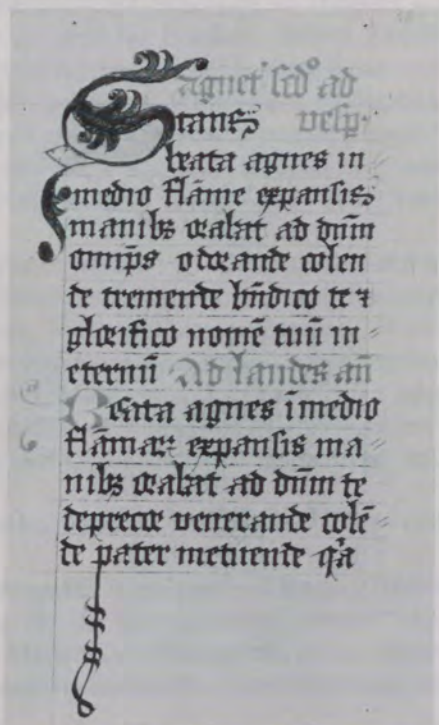 agnet' scdo ad
Stans vesp
beata agnes in
medio flāme expansis
manibꝫ orabat ad dn̄m
omīps odorande colen
de tremende bn̄dico te ⁊
glorifico nomē tuū in
eternū Ad laudes an̄
Beata agnes ī medio
flāmaꝝ expansis ma
nibꝫ orabat ad dn̄m te
deprecor venerande colē
de pater metuende qͣa